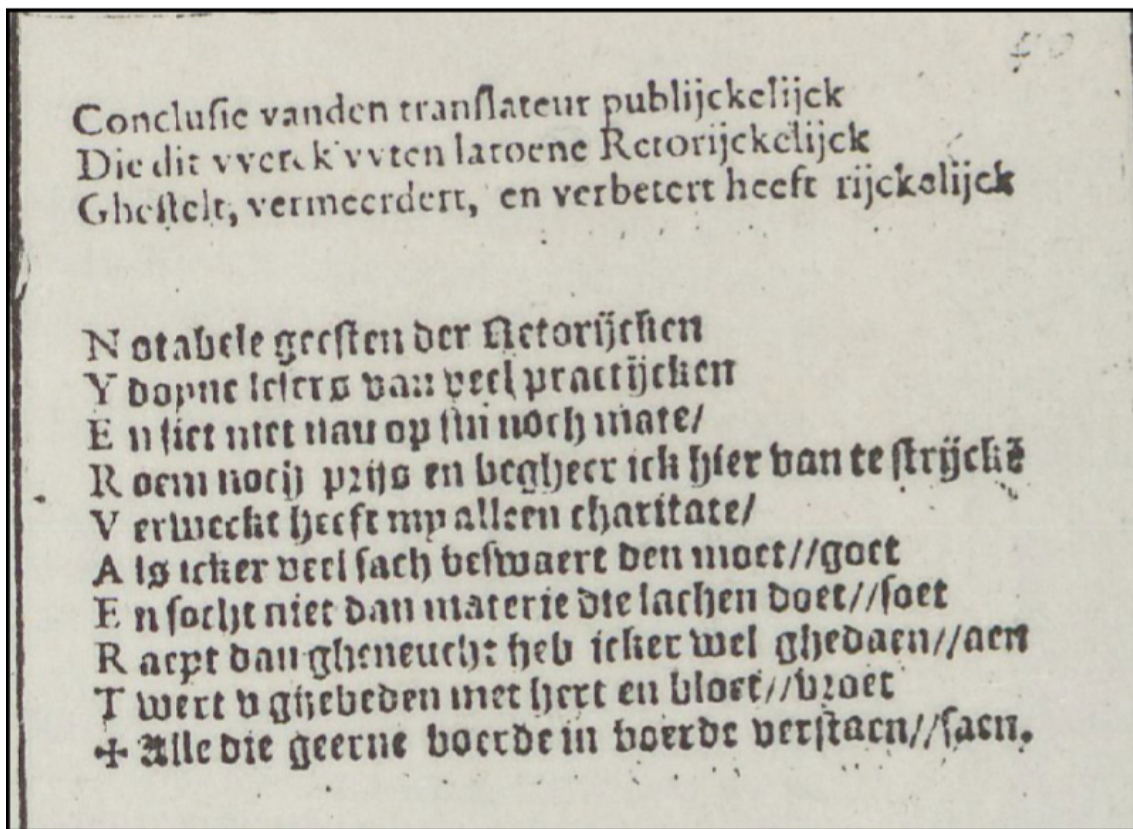 40
Conclusie vanden translateur publijckelijck
Die dit vverck vvten latoene Retorijckelijck
Ghestelt, vermeerdert, en verbetert heeft rijckelijck
N otabele geesten der Retorijcken
Y dopne lesers van veel practijcken
E n siet niet nau op stil noch mate/
R oem noch prijs en begheer ick hier van te strijckē
V erweckt heeft my alleen charitate/
A ls icker veel sach beswaert den moet//goet
E n socht niet dan materie die lachen doet//soet
R aept dan gheneucht heb icker wel ghedaen//aen
T wert v ghebeden met hert en bloet//vroet
✠ Alle die geerne boerde in boerde verstaen//saen.